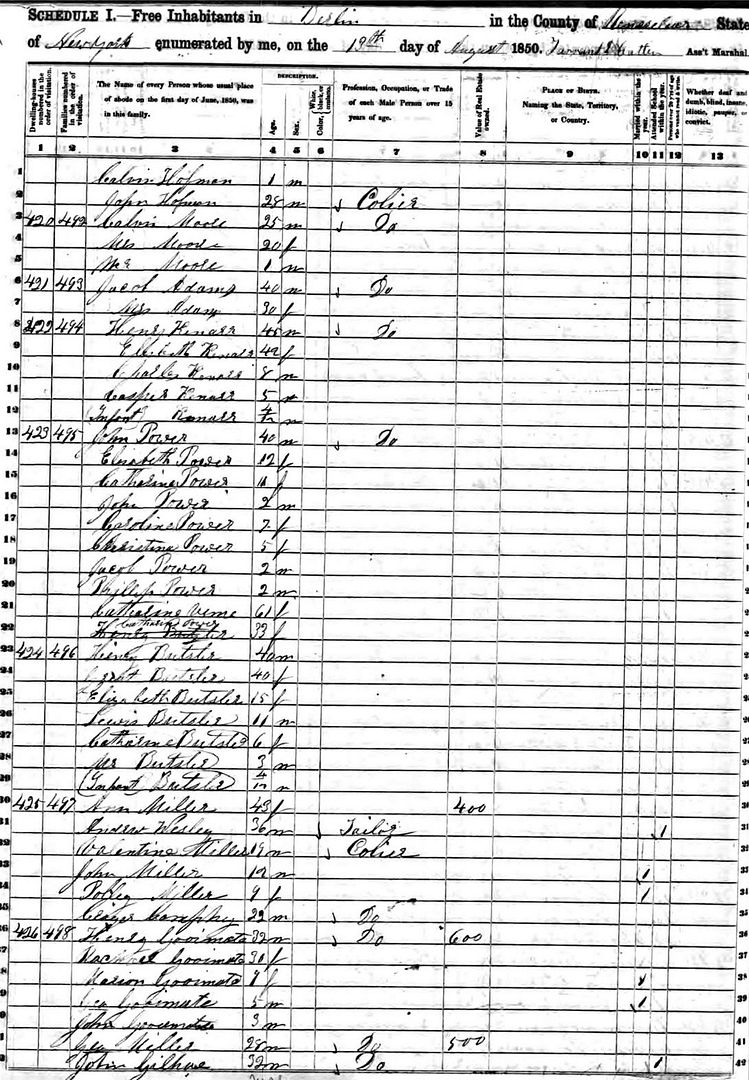 SCHEDULE I.—Free Inhabitants in Berlin in the County of Rensselaer State
of New York enumerated by me, on the 19th day of August 1850. Ass't Marshal.
Dwelling-houses numbered in the order of visitation.
Families numbered in the order of visitation.
The Name of every Person whose usual place of abode on the first day of June, 1850, was in this family.
DESCRIPTION.
Age.
Sex.
Color, White, black, or mulatto.
Profession, Occupation, or Trade of each Male Person over 15 years of age.
Value of Real Estate owned.
PLACE OF BIRTH.
Naming the State, Territory, or Country.
Married within the year.
Attended School within the year.
Persons over 20 y'rs of age who cannot read & write.
Whether deaf and dumb, blind, insane, idiotic, pauper, or convict.
1 2 3 4 5 6 7 8 9 10 11 12 13
1 Calvin Hofman 1 m
2 John Hofman 28 m Colier
3 420 492 Calvin Moore 25 m Do
4 Mrs Moore 20 f
5 Moore 1 m
6 421 493 Jacob Adams 40 m Do
7 Mrs Adam 30 f
8 422 494 Henry 45 m Do
9 42 f
10 Charles 8 m
11 Casper 5 m
12 (Infant) 4/12 m
13 423 495 John Power 40 m Do
14 Elisabeth Power 12 f
15 Catharine Power 11 f
16 John Power 2 m
17 Caroline Power 7 f
18 Christina Power 5 f
19 Jacob Power 2 m
20 Phillip Power 2 m
21 Catharine 61 f
22 Catharine Power 33 f
23 424 496 Henry Butsler 40 m
24 Butsler 40 f
25 Elizabeth Butsler 15 f
26 Lewis Butsler 11 m
27 Catharine Butsler 6 f
28 Mr Butsler 3 m
29 (Infant) Butsler 4/12 m
30 425 497 Ann Miller 43 f 400
31 Andrew Wesley 36 m Tailor 1
32 Valentine Miller 19 m Colier
33 John Miller 12 m 1
34 Polley Miller 9 f 1
35 22 m Do
36 426 498 Henry Gooimate 32 m Do 600
37 Rachael Gooimate 30 f
38 Marion Gooimate 8 f 1
39 Geo Gooimate 5 m 1
40 John Gooimate 3 m
41 Geo Miller 28 m Do 500
42 John 32 m Do 1